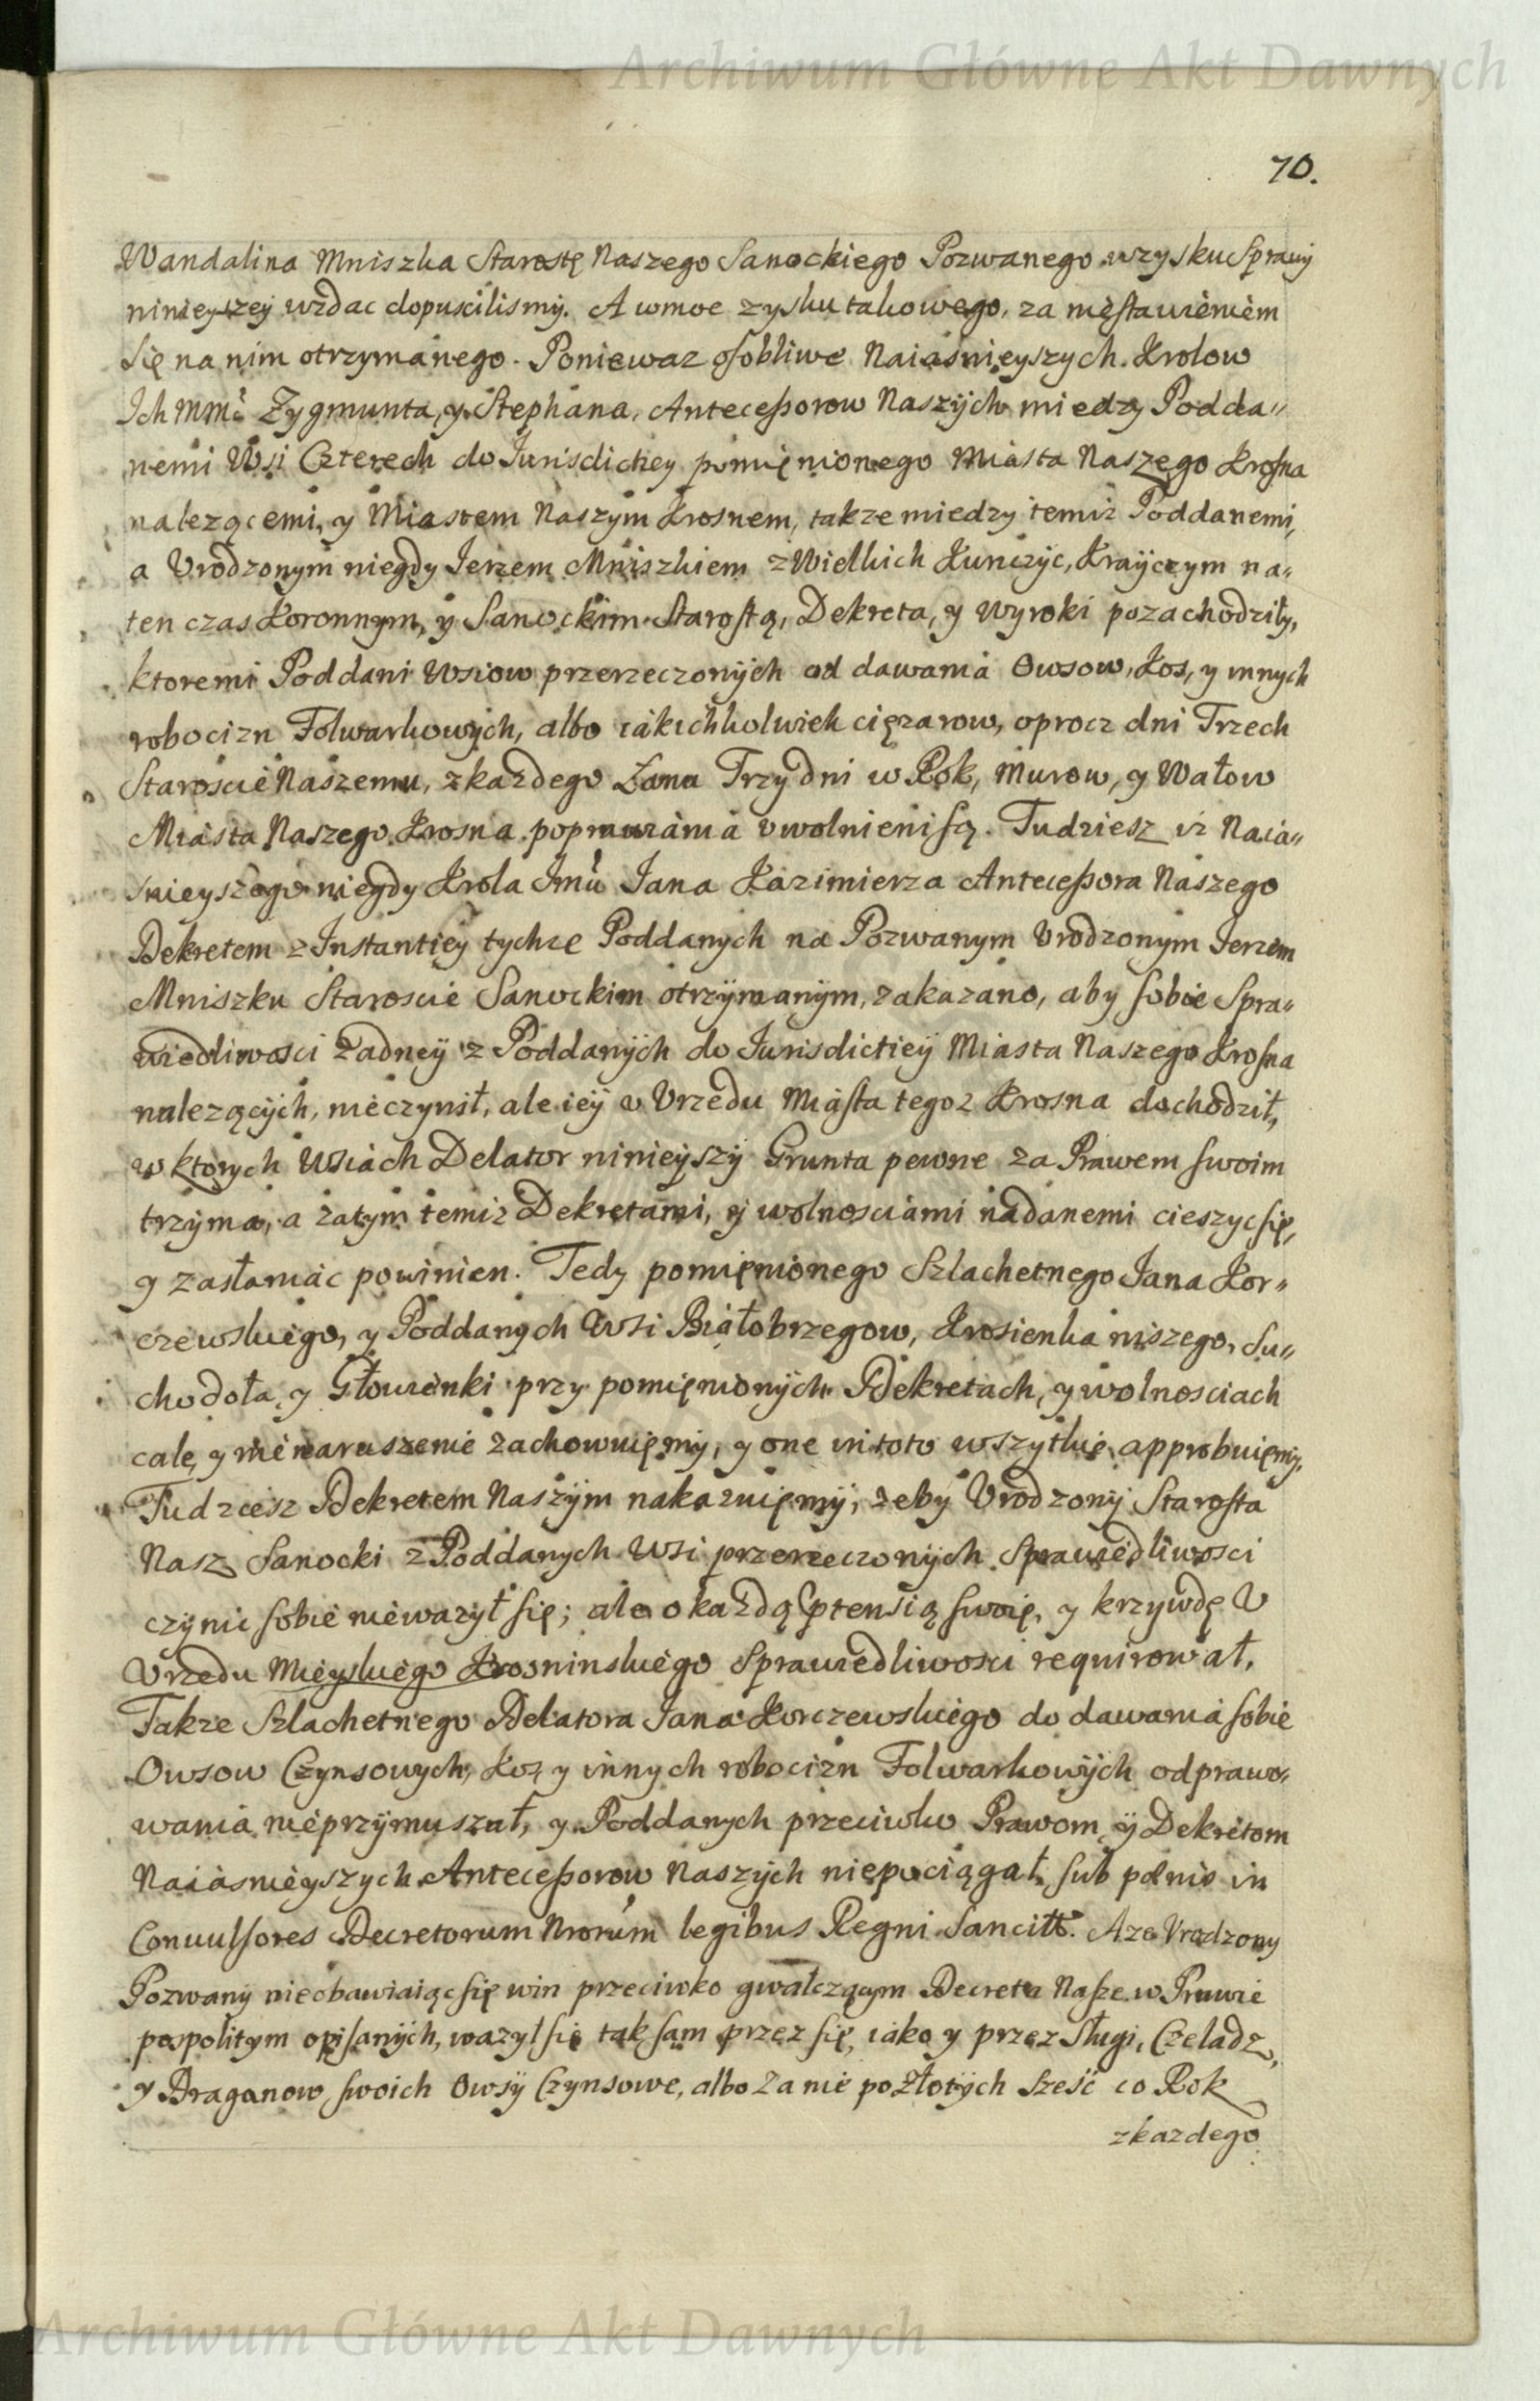 Archiwum Główne Akt Dawnych
70.
Wandalina Mniszka Starostę Naszego Sanockiego Pozwanego w zysku Sprawy
ninieyszey wzdac dopuscilismy. A wmoc zysku takowego, za niestawieniem
się na nim otrzymanego. Poniewaz osobliwe Naiasnieyszych Krolow
Ich Mmci Zygmunta, y Stephana, Antecessorow Naszych miedzy Podda„
nemi Wsi Czterech do Jurisdictiey pomięnionego Miasta Naszego Krosna
nalezącemi, y Miastem Naszym Krosnem, takze miedzy temiz Poddanemi,
a Urodzonym niegdy Jerzem Mniszkiem z Wielkich Kunczyc, Krayczym na„
ten czas Koronnym, y Sanockim Starostą, Dekreta, y wyroki pozachodziły,
ktoremi Poddani Wsiow przerzeczonych od dawania Owsow, Kos, y innych
robocizn Folwarkowych, albo iakichkolwiek cięzarow, oprocz dni Trzech
Staroscie Naszemu, z kazdego Łana Trzy dni w Rok, Murow, y Wałow
Miasta Naszego Krosna poprawiania uwolnieni są. Tudziesz iz Naia„
snieyszego niegdy Krola Jmci Jana Kazimierza Antecessora Naszego
Dekretem z Instantiey tychze Poddanych na Pozwanym Urodzonym Jerzem
Mniszku Staroscie Sanockim otrzymanym, zakazano, aby sobie Spra„
wiedliwosci zadney z Poddanych do Jurisdictiey Miasta Naszego Krosna
nalezących, nieczynił, ale iey u Urzedu Miasta tegoz Krosna dochodził,
w ktorych Wsiach Delator ninieyszy Grunta pewne za Prawem swoim
trzyma, a zatym temiz Dekretami, y wolnosciami nadanemi cieszyc się,
y zasłaniac powinien. Tedy pomięnionego Szlachetnego Jana Kor„
czewskiego, y Poddanych Wsi Białobrzegow, Krosienka niszego, Su„
chodoła, y Głowienki przy pomięnionych Dekretach, y wolnosciach
cale, y nienaruszenie zachowuięmy, y one in toto wszytkie approbuięmy,
Tudziesz Dekretem Naszym nakazuięmy, zeby Urodzony Starosta
Nasz Sanocki z Poddanych Wsi przerzeczonych Sprawiedliwosci
czynic sobie niewazył się; ale o kazdą Ptensią swoię, y krzywdę U
Urzedu Mieyskiego Krosninskiego Sprawiedliwosci requirował,
Takze Szlachetnego Delatora Jana Korczewskiego do dawania sobie
Owsow Czynsowych, Kos, y innych robocizn Folwarkowych odprawo„
wania nieprzymuszał, y Poddanych przeciwko Prawom, y Dekretom
Naiasnieyszych Antecessorow Naszych niepociągał, sub pœnis in
Convulsores Decretorum Nrorum legibus Regni Sancitt. A ze Urodzony
Pozwany nieobawiaiąc się win przeciwko gwałczącym Decreta Nasze w Prawie
pospolitym opisanych, wazył się tak sam przez się, iako y przez Sługi, Czeladz,
y Draganow swoich Owsy Czynsowe, albo za nie po Złotych Sześć co Rok
z kazdego
Archiwum Główne Akt Dawnych